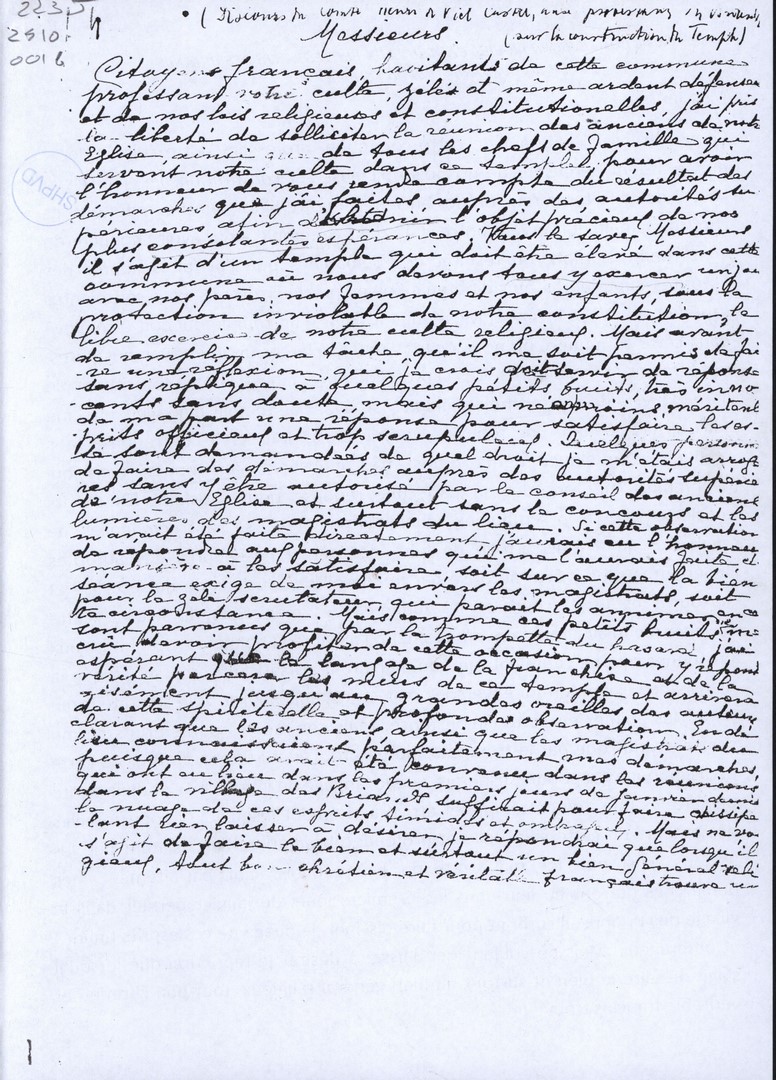 223
2510
0016
(Discours du comte Henri de Viel Castel, aux protestants de
Messieurs. (sur la construction du Temple)
Citoyens français, habitants de cette commune
professant votre culte, zélés et même ardent défenseur
et de nos lois religieuses et constitutionelles, j'ai pris
la liberté de solliciter la reunion des anciens de notre
Eglise, ainsi que de tous les chefs de famille qui
servent notre culte dans ce temple, pour avoir
l'honneur de vous rendre compte du résultat des
démarches que j'ai faites auprès des autorités su
périeures, afin d'obtenir l'objet précieux de nos
plus consolantes espérances. Vous le savez Messieurs
il s'agit d'un temple qui doit être élevé dans cette
commune où nous devons tous y exercer un jour
avec nos pères, nos femmes et nos enfants, sous la
protection inviolable de notre constitution, le
libre exercice de notre culte religieux. Mais avant
de remplir ma tâche, qu'il me soit permis de fai
re une réflexion, qui je crois doit servir de réponse
sans réplique à quelques petits bruits, très inno
cents sans doute, mais qui néanmoins méritent
de ma part une réponse pour satisfaire les es-
prits officieux et trop scrupuleux. Quelques personnes
se sont demandées de quel droit je m'étais arrogé
de faire des démarches auprès des autorités supérieu
res sans y être autorisé par le conseil des anciens
de notre Eglise et surtout sans le concours et les
lumières des magistrats du lieu. Si cette observation
m'avait été faite directement j'aurais eu l'honneur
de répondre aux personnes qui me l'aurais faite, de
manière à les satisfaire, soit sur ce que la bien
séance exige de moi envers les magistrats, soit
pour le zèle scrutateur, qui parait les animer en ce
te circonstance. Mais comme ces petits bruits me
sont parvenus que par la trompette du hasard j'ai
cru devoir profiter de cette occasion pour y répondre
espérant que le langage de la franchise et de la
vérité percera les murs de ce temple et arrivera
aisément jusqu'aux grandes oreilles des auteurs
de cette spirituelle et profonde observation. En dé
clarant que les anciens ainsi que les magistrats du
lieu connaissaient parfaitement mes démarches,
puisque cela avait été convenu dans les réunions
qui ont eu lieu dans les premiers jours de janvier dernier
dans le village des Briands suffirait pour faire dissiper
le nuage de ces esprits timides et ombrageux. Mais ne vou
lant rien laisser à désirer, je répondrai que lorsqu'il
s'agit de faire le bien et surtout un bien général reli
gieux, tout bon chrétien et véritable français trouve un
SHPVD